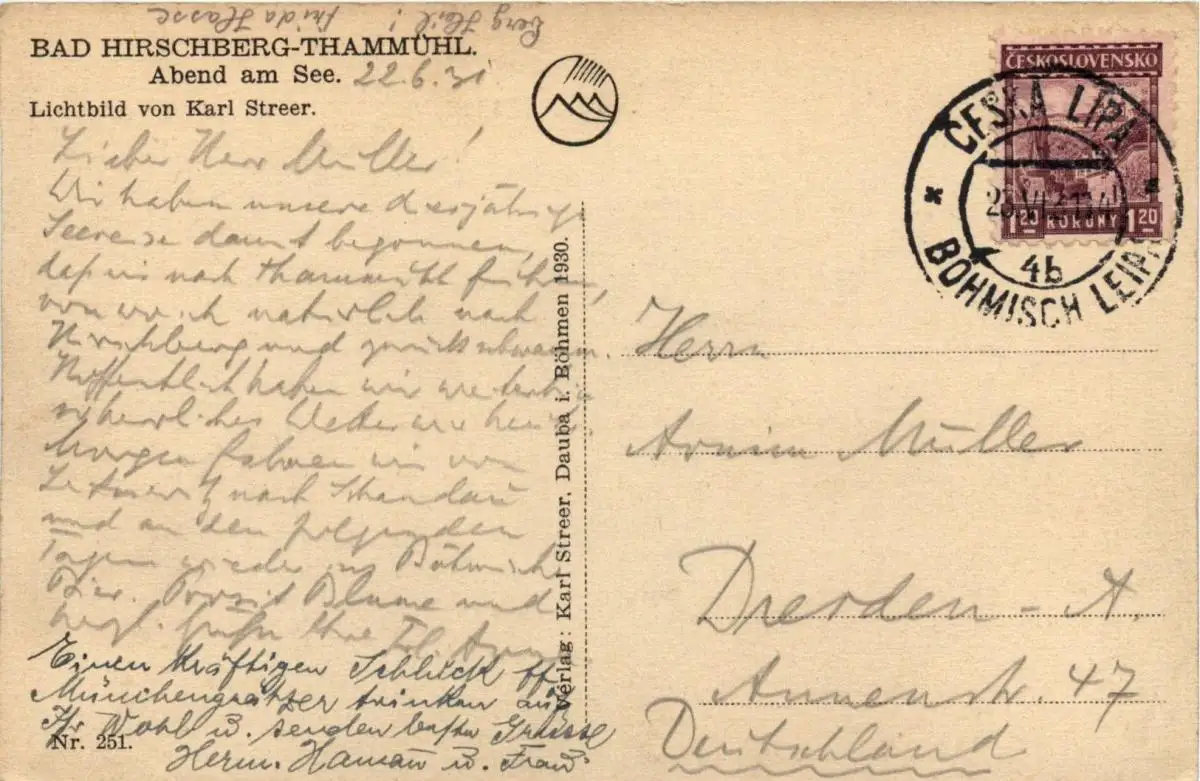 Berg Heil!
Frida Hasse
BAD HIRSCHBERG-THAMMÜHL.
Abend am See. 22.6.31
Lichtbild von Karl Streer.
Lieber Herr Müller!
Wir haben unsere diesjährige
Seereise damit begonnen,
daß wir nach Thammühl fuhren,
von wo ich natürlich nach
Hirschberg und zurück schwamm.
Hoffentlich haben wir weiterhin
so herrliches Wetter wie heute.
Morgen fahren wir von
Leitmeritz nach Schandau
und an den folgenden
Tagen wieder ins Böhmische
Bier. Prosit Blume und
hrzl. Grüße Ihre
Einen kräftigen Schluck ff
Münchengrätzer trinken auf
Ihr Wohl u. senden beste Grüsse
Herm. Haman u. Frau
Nr. 251.
Verlag: Karl Streer, Dauba i. Böhmen 1930.
ČESKOSLOVENSKO
1 20 KORUNY 1 20
ČESKÁ LÍPA
4b
BÖHMISCH LEIPA
Herrn
Armin Müller
Dresden - A.
Annenstr. 47
Deutschland